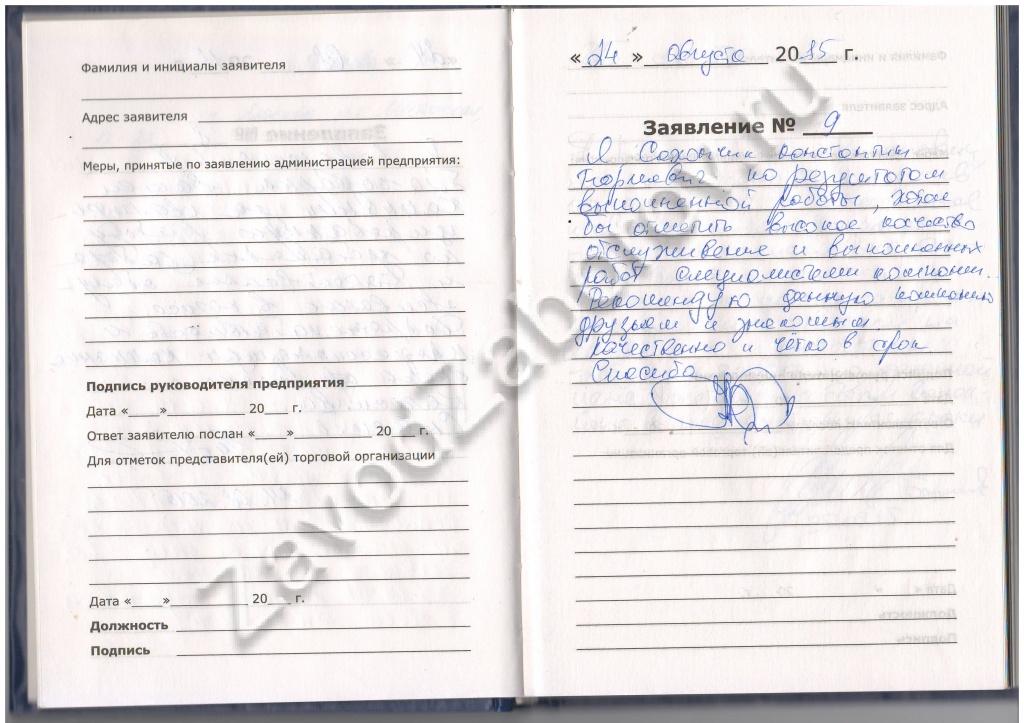 Фамилия и инициалы заявителя
Адрес заявителя
Меры, принятые по заявлению администрацией предприятия:
Подпись руководителя предприятия
Дата «____»____________ 20___ г.
Ответ заявителю послан «____»____________ 20___ г.
Для отметок представителя(ей) торговой организации
Дата «____»____________ 20___ г.
Должность
Подпись
«24» августа 2015 г.
Заявление № 9
Я константин
по результатом
выполненной работы, хотел
бы отметить высокое качество
обслуживания и выполненных
работ специалистами компании.
Рекомендую данную компанию
друзьям и знакомым.
качественно и чётко в срок
Спасибо
ZavodZaborov.ru